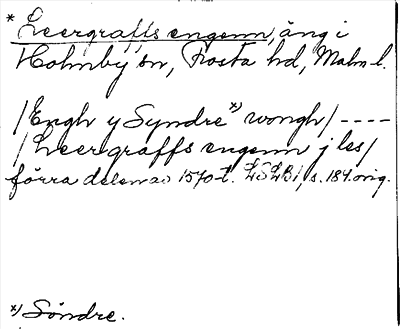 * Leergraffs engenn, äng i
Holmby sn, Frosta hd, Malm. l.
/Engh y Syndre x) wongh/ ----
/Leergraffs engenn j les/
förra delen av 1570-t. LSLB 1, s. 184. orig.
x) Söndre.